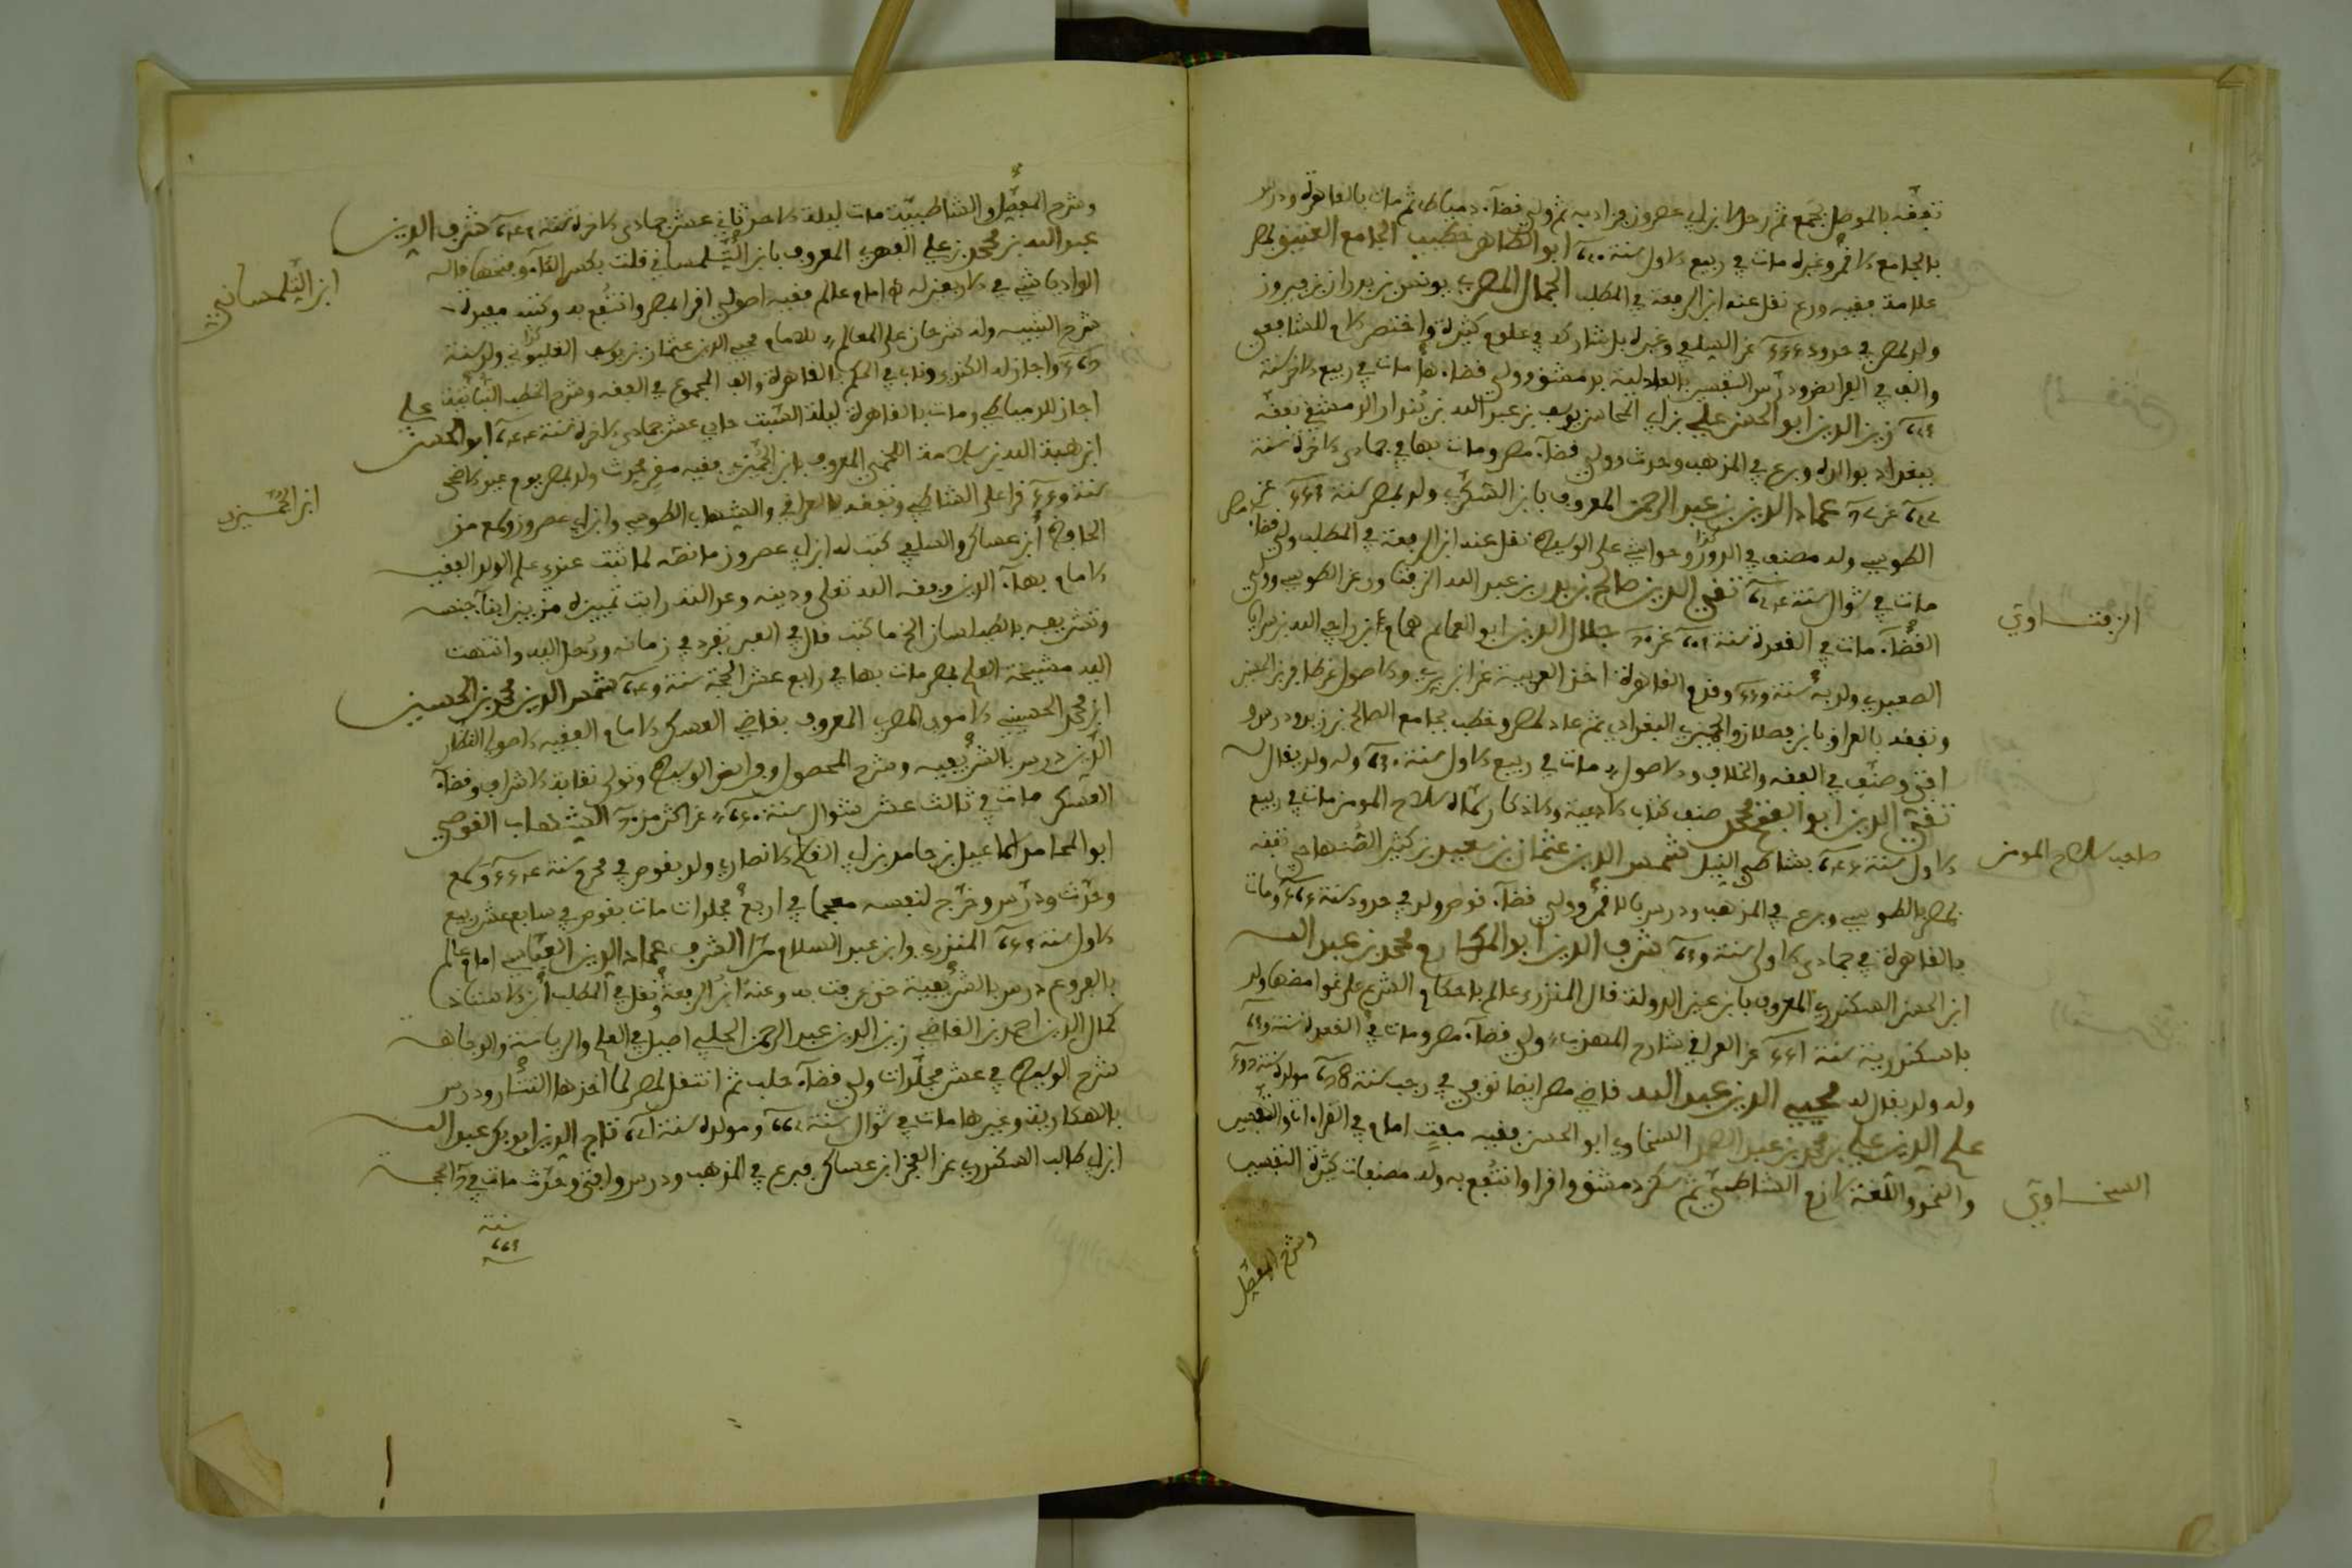 تفقه بالموصل بجمع ثم رحل لابن أبي عصرون فزاد به ثم ولي قضآء دمياط ثم مات بالقاهرة ودرس
بالجامع الاقمر وغيره مات في ربيع الاول سنة ابو الطاهر خطيب الجامع العتيق بمصر
علامة فقيه ورع نقل عنه ابن الرفعة في المطلب الجمال المصري يونس بن بدران بن فيروز
ولد بمصر في حدود عن السلفي وغيره بل شارك في علوم كثيرة واختصر الام للشافعي
والف في الفرائض ودرس التفسير بالعادلية بدمشق وولي قضاءها مات في ربيع الاخر سنة
زين الدين ابو الحسن علي بن ابي المحاسن يوسف بن عبد الله بن بندار الدمشقي تفقه
ببغداد بوالده وبرع في المذهب وحدث وولي قضآء مصر ومات بها في جمادى الاخرة سنة
عماد الدين بن عبد الرحمن المعروف بابن السكري ولد بمصر سنة
الطوسي وله مصنف في الدور وحواشي على الوسيط نقل عنه ابن الرفعة في المطلب ولي قضاء مصر
مات في شوال سنة تقي الدين صالح بن بدر بن عبد الله الزفتاوي عن الطوسي وولي
القضآء مات في القعدة سنة جلال الدين ابو العمائم همام بن راجي الله بن سرايا
الصعيدي ولد به سنة وقدم القاهرة اخذ العربية عن ابن بري والاصول عن ظافر بن الحسين
وتفقه بالعراق بابن فضلان والمجير البغدادي ثم عاد لمصر وخطب بجامع الصالح بن رزيك ودرس و
افتى وصنف في الفقه والخلاف والاصول مات في ربيع الاول سنة وله ولد يقال له
تقي الدين ابو الفتح محمد صنف كتاب الادعية والاذكار سماه سلاح المومن مات في ربيع
الاول سنة بشاطي النيل شمس الدين عثمان بن سعيد بن كثير الصنهاجي تفقه
بمصر بالطوسي وبرع في المذهب ودرس بالاقمر وولي قضآء قوص ولد في حدود سنة ومات
بالقاهرة في جمادى الاولى سنة شرف الدين ابو المكارم محمد بن عبد الله
ابن الحسن السكندري المعروف بابن عين الدولة قال المنذري عالم بالاحكام الشرع على غوامضها ولد
باسكندرية سنة عن العراقي شارح المهذب ولي قضآء مصر ومات في القعدة سنة
وله ولد يقال له محيي الدين عبد الله قاضي مصر ايضا توفي في رجب سنة مولده سنة
علم الدين علي بن محمد بن عبد الصمد السخاوي ابو الحسن فقيه مفت امام في القراءات والتفسير
والنحو واللغة لازم الشاطبي ثم سكن دمشق واقرا وانتفع به وله مصنفات كثيرة التفسير
وشرح المفصل
الزفتاوي
صاحب سلاح المومن
السخاوي
وشرح المفصل والشاطبية مات ليلة الاحد ثاني عشر جمادى الاخرة سنة شرف الدين
عبد الله بن محمد بن علي الفهري المعروف بابن التلمساني قلت بكسر اللام وفتحها قاله
الوادياشي في امام عالم فقيه اصولي اقرا بمصر وانتفع به وكتبه مفيدة
شرح التنبيه وله شرحان على المعالم للامام محيي الدين عثمان بن يوسف القليوبي ولد سنة
واجاز له الكندي وناب في الحكم بالقاهرة والف المجموع في الفقه وشرح الخطب النباتية
اجاز للدمياطي ومات بالقاهرة ليلة السبت حادي عشر جمادى الاخرة سنة ابو الحسن علي
ابن هبة الله بن سلامة اللخمي المعروف بابن الجميزي فقيه مقر محدث ولد بمصر يوم عيد الاضحى
سنة قرا على الشاطبي وتفقه بالعراقي والشهاب الطوسي وابن ابي عصرون وسمع من
الحافظ ابن عساكر والسلفي كتب له ابن ابي عصرون ما نصه لما ثبت عندي علم الولد الفقيه
الامام بهآء الدين وفقه الله تعالى ودينه وعدالته رايت تمييزه من بين ابنآء جنسه
وتشريفه بالطيلسان الخ ما كتب قال في العبر تفرد في زمانه ورحل اليه وانتهت
اليه مشيخة العلم بمصر مات بها في رابع عشر الحجة سنة شمس الدين محمد بن الحسين
ابن محمد الحسيني الاموي المصري المعروف بقاضي العسكر الامام الفقيه الاصولي النظار
الدين درس بالشريفية وشرح المحصول وفرايض الوسيط وتولى نقابة الاشراف وقضآء
العسكر مات في ثالث عشر شوال سنة عن اكثر من الشهاب القوصي
ابو المحامد اسماعيل بن حامد بن ابي القاسم الانصاري ولد بقوص في محرم سنة وسمع
وحدث ودرس وخرج لنفسه معجما في اربع مجلدات مات بقوص في سابع عشر ربيع
الاول سنة المنذري وابن عبد السلام مرا الشرف عماد الدين العباسي امام عالم
بالفروع درس بالشريفية حتى عرفت به وعنه ابن الرفعة ونقل في المطلب ابن الاستاذ
كمال الدين احمد بن القاضي زين الدين عبد الرحمن الحلبي اصيل في العلم والرياسة والوجاهة
شرح الوسيط في عشر مجلدات ولي قضآء حلب ثم انتقل لمصر لما اخذها التتار ودرس
بالهكارية وغيرها مات في شوال سنة ومولده سنة تاج الدين ابو بكر عبد الله
ابن ابي طالب السكندري عن الفخر ابن عساكر فبرع في المذهب ودرس وافتى وحدث مات في الحجة
سنة
ابن التلمساني
ابن الجميزي